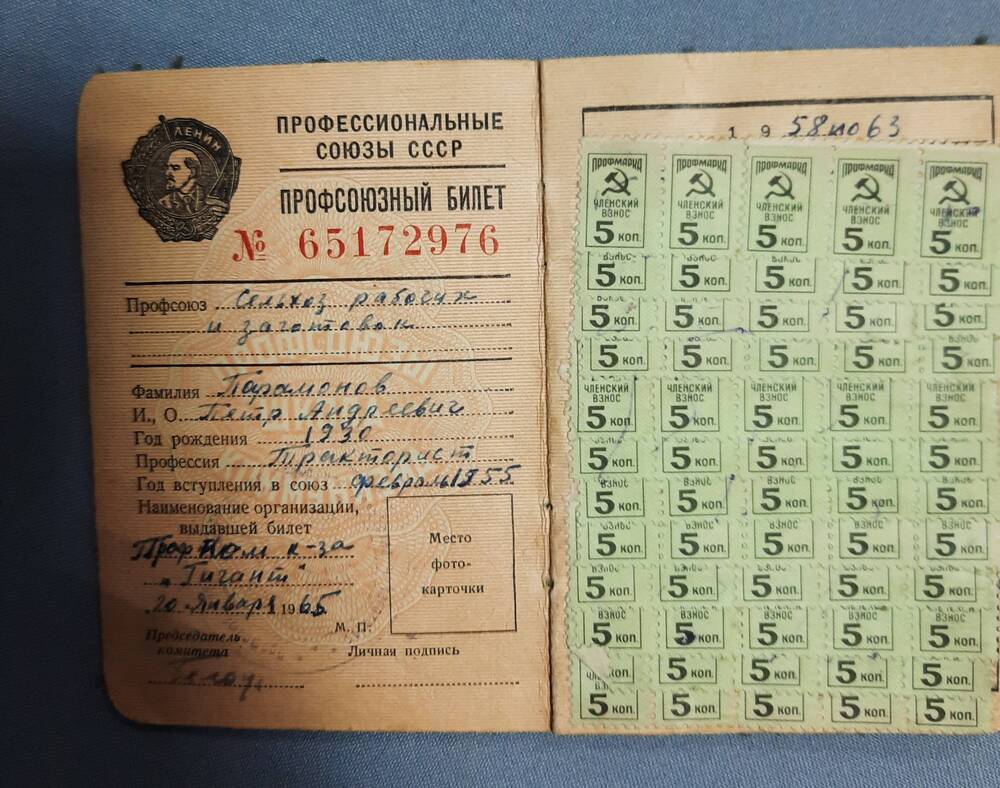 ЛЕНИН
ПРОФЕССИОНАЛЬНЫЕ
СОЮЗЫ СССР
ПРОФСОЮЗНЫЙ БИЛЕТ
№ 65172976
Профсоюз Сельхоз рабочих
и заготовок
Фамилия Парамонов
И., О. Петр Андреевич
Год рождения 1930
Профессия Тракторист
Год вступления в союз февраль 1955
Наименование организации,
выдавшей билет
Профком к-за
"Гигант"
20 января 1965
Место
фото-
карточки
М. П.
Председатель
комитета
Личная подпись
1958 по 63
ПРОФМАРКА ПРОФМАРКА ПРОФМАРКА ПРОФМАРКА ПРОФМАРКА
ЧЛЕНСКИЙ ЧЛЕНСКИЙ ЧЛЕНСКИЙ ЧЛЕНСКИЙ ЧЛЕНСКИЙ
ВЗНОС ВЗНОС ВЗНОС ВЗНОС ВЗНОС
5 коп. 5 коп. 5 коп. 5 коп. 5 коп.
5 коп. 5 коп. 5 коп. 5 коп. 5 коп.
5 коп. 5 коп. 5 коп. 5 коп. 5 коп.
5 коп. 5 коп. 5 коп. 5 коп. 5 коп.
ЧЛЕНСКИЙ ЧЛЕНСКИЙ ЧЛЕНСКИЙ ЧЛЕНСКИЙ ЧЛЕНСКИЙ
ВЗНОС ВЗНОС ВЗНОС ВЗНОС ВЗНОС
5 коп. 5 коп. 5 коп. 5 коп. 5 коп.
5 коп. 5 коп. 5 коп. 5 коп. 5 коп.
ВЗНОС ВЗНОС ВЗНОС ВЗНОС ВЗНОС
5 коп. 5 коп. 5 коп. 5 коп. 5 коп.
ВЗНОС ВЗНОС ВЗНОС ВЗНОС ВЗНОС
5 коп. 5 коп. 5 коп. 5 коп. 5 коп.
5 коп. 5 коп. 5 коп. 5 коп. 5 коп.
ВЗНОС ВЗНОС ВЗНОС ВЗНОС ВЗНОС
5 коп. 5 коп. 5 коп. 5 коп. 5 коп.
коп. 5 коп. 5 коп. 5 коп. 5 коп.
5 коп. 5 коп. 5 коп. 5 коп. 5 коп.